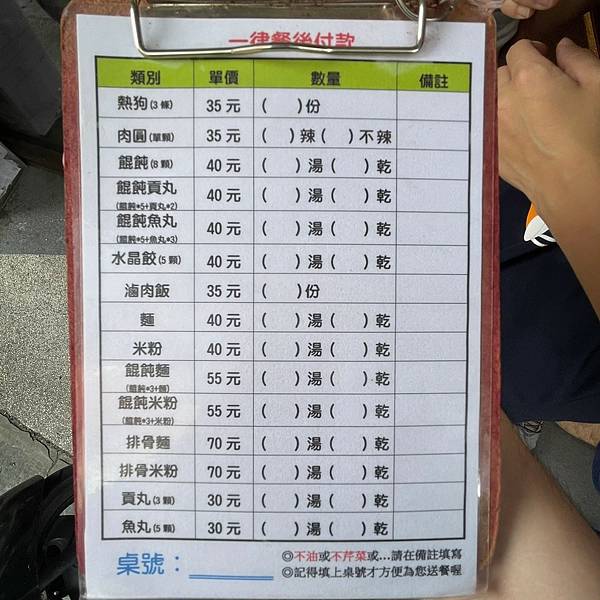 一律餐後付款
類別 單價 數量 備註
熱狗(3 條) 35 元 ( )份
肉圓(單顆) 35 元 ( )辣( )不辣
餛飩(8 顆) 40 元 ( )湯( )乾
餛飩貢丸 40 元 ( )湯( )乾
(餛飩*5+貢丸*2)
餛飩魚丸 40 元 ( )湯( )乾
(餛飩*5+魚丸*3)
水晶餃(5 顆) 40 元 ( )湯( )乾
滷肉飯 35 元 ( )份
麵 40 元 ( )湯( )乾
米粉 40 元 ( )湯( )乾
餛飩麵 55 元 ( )湯( )乾
(餛飩*3+麵)
餛飩米粉 55 元 ( )湯( )乾
(餛飩*3+米粉)
排骨麵 70 元 ( )湯( )乾
排骨米粉 70 元 ( )湯( )乾
貢丸(3 顆) 30 元 ( )湯( )乾
魚丸(5 顆) 30 元 ( )湯( )乾
桌號：______
◎不油或不芹菜或...請在備註填寫
◎記得填上桌號才方便為您送餐喔